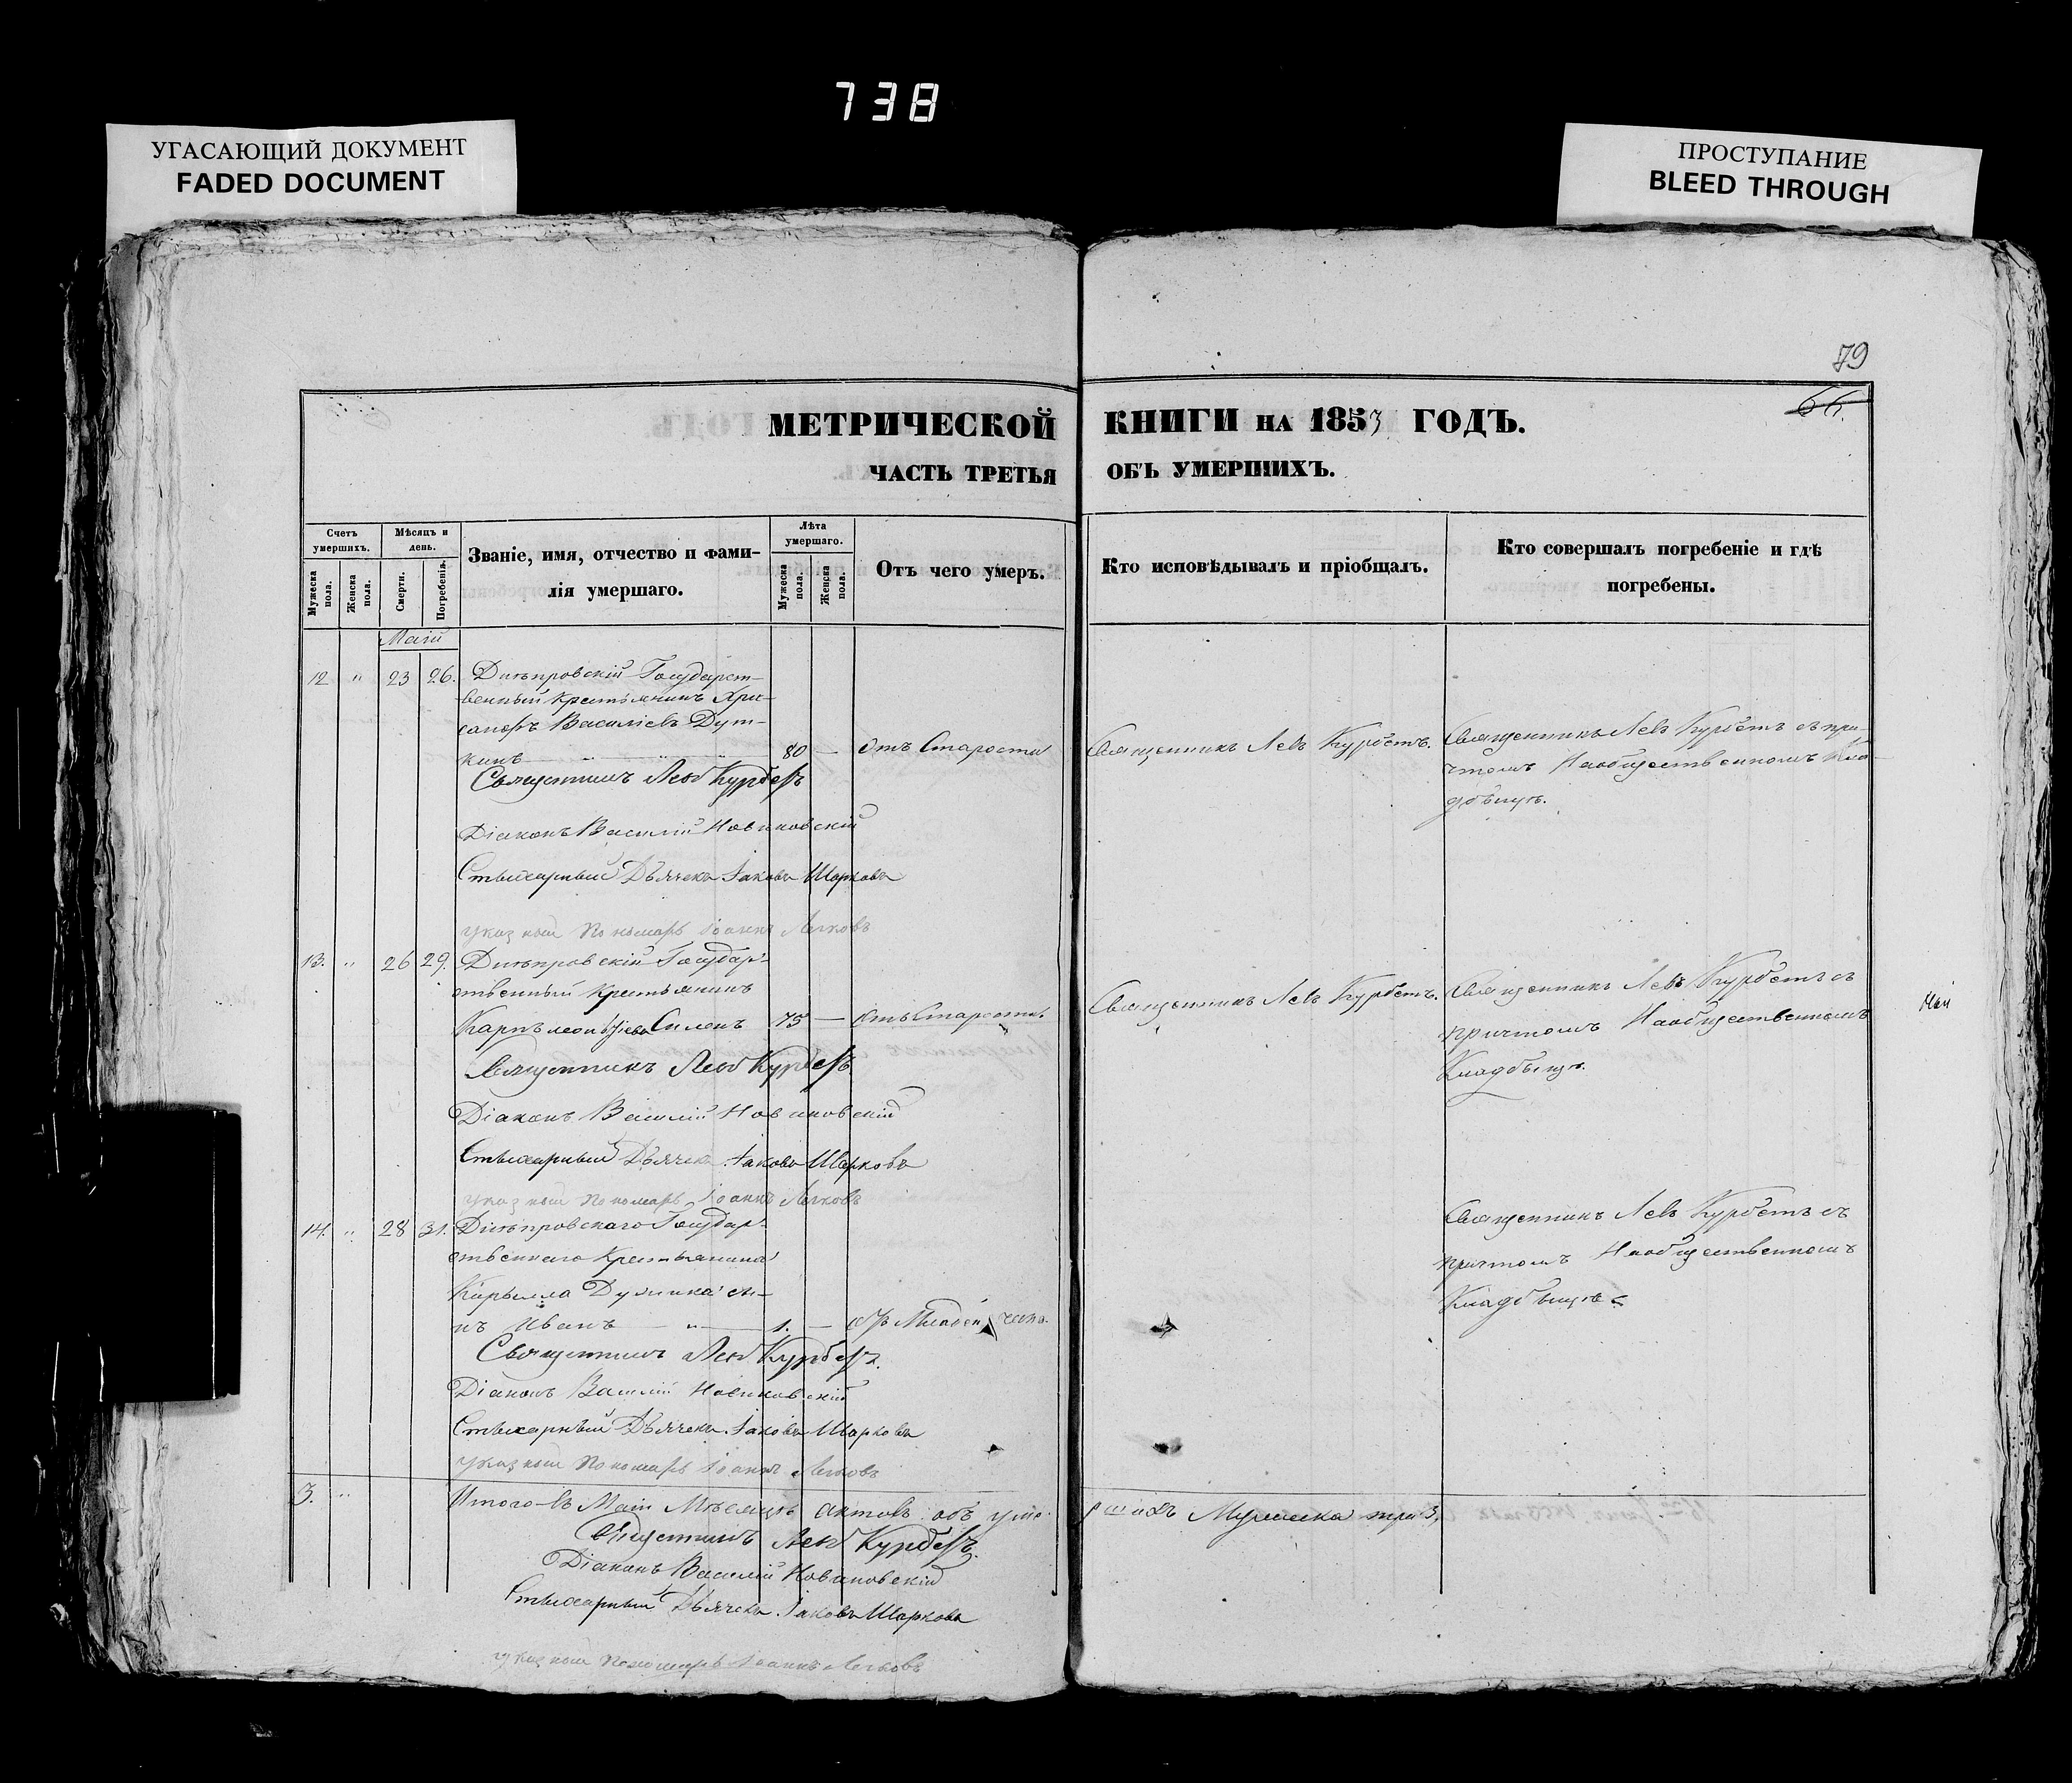 738
УГАСАЮЩИЙ ДОКУМЕНТ
FADED DOCUMENT
ПРОСТУПАНИЕ
BLEED THROUGH
79
66.
МЕТРИЧЕСКОЙ КНИГИ НА 1853 ГОДЪ.
ЧАСТЬ ТРЕТЬЯ ОБЪ УМЕРШИХЪ.
Счетъ умершихъ.
Мужеска пола.
Женска пола.
Мѣсяцъ и день.
Смерти.
Погребенія.
Званіе, имя, отчество и фами-
лія умершаго.
Лѣта умершаго.
Мужеска пола.
Женска пола.
Отъ чего умеръ.
Кто исповѣдывалъ и пріобщалъ.
Кто совершалъ погребеніе и гдѣ
погребены.
Маій
12 " 23 26. Днѣпровскій Государст-
венный Крестьянинъ Хри-
санфъ Василіевъ Дут-
кинъ 80 — Отъ Старости
Священникъ Левъ Курбетъ.
Священникъ Левъ Курбетъ съ при-
чтомъ На общественномъ Кла-
дбищѣ.
Священникъ Левъ Курбетъ
Діаконъ Василій Новиковскій
Стихарный Дьячекъ Іаковъ Шарковъ
указный Пономарь Іоаннъ
13. " 26 29. Днѣпровскій Государ-
ственный Крестьянинъ
Карпъ 75 — Отъ Старости
Священникъ Левъ Курбетъ.
Священникъ Левъ Курбетъ съ
причтомъ На общественномъ
Кладбищѣ.
Май
Священникъ Левъ Курбетъ
Діаконъ Василій Новиковскій
Стихарный Дьячекъ Іаковъ Шарковъ
указный Пономарь Іоаннъ
14. " 28 31. Днѣпровскаго Государ-
ственнаго Крестьянина
Кирилла сы-
нъ Иванъ — " — 1. —
Священникъ Левъ Курбетъ съ
причтомъ На общественномъ
Кладбищѣ
Священникъ Левъ Курбетъ.
Діаконъ Василій Новиковскій
Стихарный Дьячекъ Іаковъ Шарковъ
указный Пономарь Іоаннъ
3. " Итого въ Маіи Мѣсяцѣ актовъ объ уме-
ршихъ Мужеска три 3,
Священникъ Левъ Курбетъ.
Діаконъ Василій Новиковскій
Стихарный Дьячекъ Іаковъ Шарковъ
указный Пономарь Іоаннъ